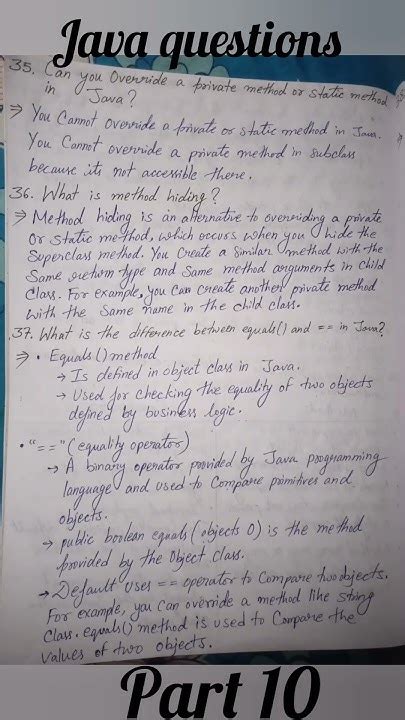 Java questions
35. Can you Override a private method or static method
in Java?
⇒ You Cannot override a private or static method in Java.
You Cannot override a private method in subclass
because its not accessible there.
36. What is method hiding?
⇒ Method hiding is an alternative to overriding a private
Or static method, which occurs when you hide the
Superclass method. You create a similar method with the
Same return type and Same method arguments in child
Class. For example, you can create another private method
with the Same name in the child class.
37. What is the difference between equals() and == in Java?
⇒ • Equals() method
→ Is defined in object class in Java.
→ Used for checking the equality of two objects
defined by business logic.
• "==" (equality operator)
→ A binary operator provided by Java programming
language and used to Compare primitives and
objects.
→ public boolean equals(objects O) is the method
provided by the Object class.
→ Default uses == operator to Compare two objects.
For example, you can override a method like string
Class. equals() method is used to Compare the
values of two objects.
Part 10